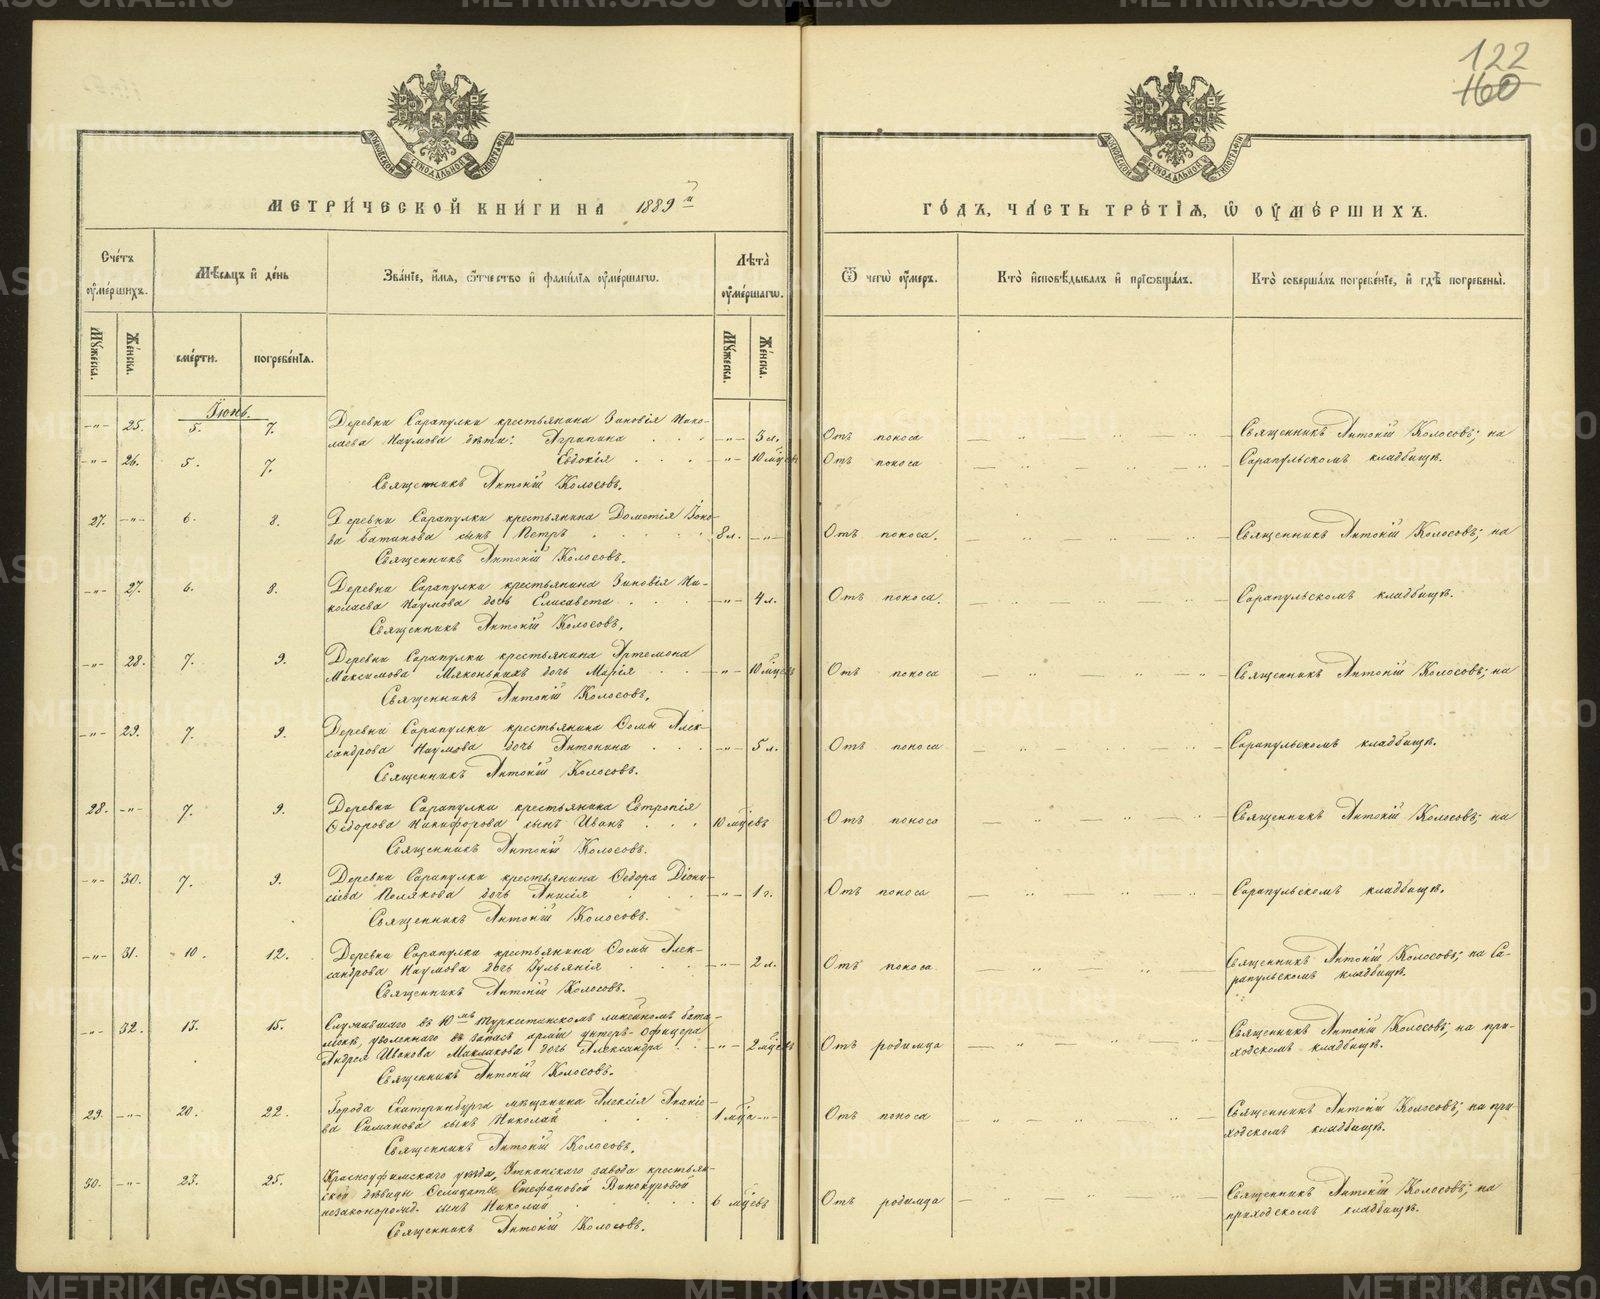 122
160
МЕТРИЧЕСКОЙ КНИГИ НА 1889й
ГОДЪ, ЧАСТЬ ТРЕТІЯ, Ѿ ОУМЕРШИХЪ.
Счетъ оумершихъ.
Мѣсяцъ и день
Званіе, имя, отчество и фамилія оумершагѡ.
Лѣта оумершагѡ.
Ѿ чегѡ оумеръ.
Кто исповѣдывалъ и пріѡбщалъ.
Кто совершалъ погребеніе, и гдѣ погребены.
Мужеска.
Женска.
смерти.
погребенія.
Мужеска.
Женска.
Іюнь.
-„- 25. 5. 7. Деревни Сарапулки крестьянина Зиновія Нико-
лаева Наумова дѣти: Агрипина -„- 3 л. Отъ поноса Священникъ Антоній Колосовъ; на
-„- 26. 5. 7. Евдокія -„- 10 мцевъ Отъ поноса Сарапульскомъ кладбищѣ.
Священникъ Антоній Колосовъ.
27. -„- 6. 8. Деревни Сарапулки крестьянина Дометія
сынъ Петръ 8 л. -„- Отъ поноса. Священникъ Антоній Колосовъ; на
Священникъ Антоній Колосовъ.
-„- 27. 6. 8. Деревни Сарапулки крестьянина Зиновія Ни-
колаева Наумова дочь Елисавета -„- 4 л. Отъ поноса. Сарапульскомъ кладбищѣ.
Священникъ Антоній Колосовъ.
-„- 28. 7. 9. Деревни Сарапулки крестьянина Артемона
Максимова Мяконькихъ дочь Марія -„- 10 мцевъ Отъ поноса Священникъ Антоній Колосовъ; на
Священникъ Антоній Колосовъ.
-„- 29. 7. 9. Деревни Сарапулки крестьянина Ѳомы Алек-
сандрова Наумова дочь Антонина -„- 5 л. Отъ поноса Сарапульскомъ кладбищѣ.
Священникъ Антоній Колосовъ.
28. -„- 7. 9. Деревни Сарапулки крестьянина Евтропія
Ѳедорова Никифорова сынъ Иванъ 10 мцевъ Отъ поноса Священникъ Антоній Колосовъ; на
Священникъ Антоній Колосовъ.
-„- 30. 7. 9. Деревни Сарапулки крестьянина Ѳедора Діони-
сіева Полякова дочь Анисія -„- 1 г. Отъ поноса Сарапульскомъ кладбищѣ.
Священникъ Антоній Колосовъ.
-„- 31. 10. 12. Деревни Сарапулки крестьянина Ѳомы Алек-
сандрова Наумова дочь Іульянія -„- 2 л. Отъ поноса Священникъ Антоній Колосовъ; на Са-
рапульскомъ кладбищѣ.
Священникъ Антоній Колосовъ.
-„- 32. 13. 15. Служившаго въ 10мъ Туркестанскомъ линейномъ бата-
ліонѣ, уволеннаго въ запасъ арміи унтеръ-офицера
Андрея Маклакова дочь Александра -„- 2 мцевъ Отъ родимца Священникъ Антоній Колосовъ; на при-
ходскомъ кладбищѣ.
Священникъ Антоній Колосовъ.
29. -„- 20. 22. Города Екатеринбурга мѣщанина Алексія Ананіе-
ва Симанова сынъ Николай 1 мца -„- Отъ поноса Священникъ Антоній Колосовъ; на при-
ходскомъ кладбищѣ.
Священникъ Антоній Колосовъ.
30. -„- 23. 25. Красноуфимскаго уѣзда, Уткинскаго завода крестьян-
ской дѣвицы Фелицаты Стефановой Винокуровой
незаконорожд. сынъ Николай 6 мцевъ Отъ родимца Священникъ Антоній Колосовъ; на
приходскомъ кладбищѣ.
Священникъ Антоній Колосовъ.
METRIKI.GASO-URAL.RU